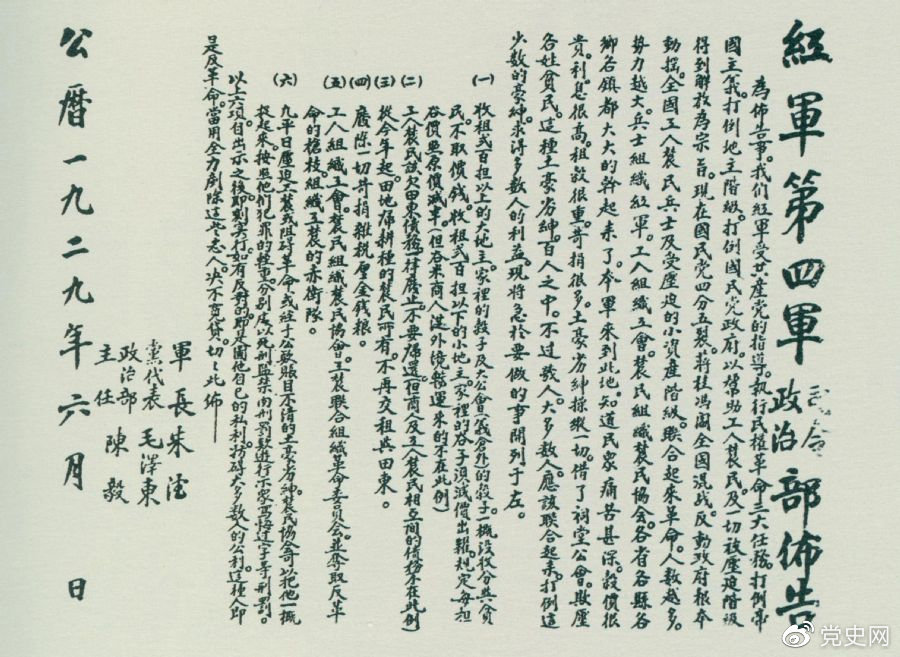 紅軍第四軍司令政治部佈告
為佈告事。我們紅軍受共產党的指導。執行民權革命三大任務。打倒帝
國主義。打倒地主階級。打倒國民党政府。以幫助工人農民及一切被壓迫階級
得到解放為宗旨。現在國民党四分五裂。蔣桂馮閻全國混战。反動政府根本
動摇。全國工人農民兵士及受壓迫的小資產階級。聯合起來革命。人数越多。
势力越大。兵士組織紅軍。工人組織工會。農民組織農民協会。各省各縣各
鄉各鎮都大大的幹起来了。本軍來到此地。知道民众痛苦甚深。穀價很
貴。利息很高。租穀很重。苛捐很多。土豪劣紳操縱一切。借了祠堂公會。欺壓
各姓貧民。這種土豪劣紳。百人之中。不过數人。大多數人應該联合起来。打倒這
少数的豪紳。求得多数人的利益。現將急於要做的事開列于左。
(一)收租弍百担以上的大地主。家裡的穀子及大公會(義倉外)的穀子一概沒收分與貧
民。不取價钱。收租弍百担以下的小地主。家裡的谷子。須減價出糶。規定每担
谷價照原價减半。(但谷米商人從外境辦運来的不在此例)
(二)工人農民該欠田東債務。一律廢止。不要歸還。(但商人及工人農民相互間的債務不在此例)
(三)從今年起。田地歸耕種的農民所有。不再交租與田東。
(四)廢除一切苛捐雜稅厘金錢粮。
(五)工人組織工會。農民組織農民協會。工農联合組織革命委員会。並奪取反革
命的槍枝組織工農的赤衛隊。
(六)九平日壓迫工農或阻碍革命。或經手公欵賬目不清的土豪劣紳。農民協会可以把他一概
捉起来。按照他们犯罪的輕重。分别處以死刑監禁肉刑罰欵遊行示眾寫悔过字等刑罰。
以上六項自出示之後。即刻实行。如有反對的。即是圖他自己的私利。妨碍大多數人的公利。這種人即
是反革命。當用全力剷除這些惡人。决不寬貸。切切此佈
軍長朱德
黨代表毛澤東
政治部主任陳毅
公曆一九二九年六月 日
党史网